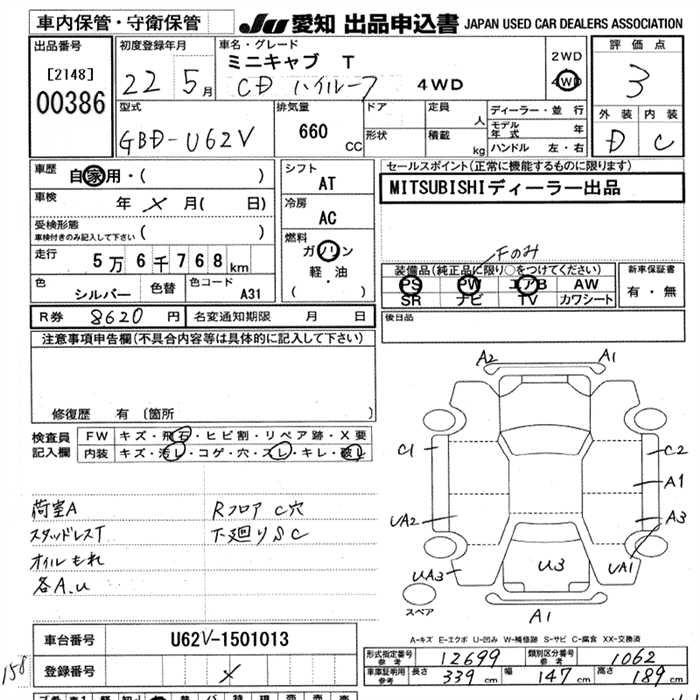 車内保管・守衛保管
JU 愛知 出品申込書 JAPAN USED CAR DEALERS ASSOCIATION
出品番号 初度登録年月 車名・グレード 2WD 評価点
[2148] 22 5月 ミニキャブ T 4WD 3
00386 CD ハイルーフ 4WD 外装 内装
型式 排気量 ドア 定員 人 ディーラー・並行 D C
GBD-U62V 660 cc 形状 積載 kg モデル年式 年
ハンドル 左・右
車歴 自家用・( ) シフト AT セールスポイント(正常に機能するものに限ります)
車検 年 × 月( 日) 冷房 AC MITSUBISHIディーラー出品
受検形態
車検付きのみ記入して下さい ( ) 燃料
走行 5万6千768km ガソリン Fのみ
軽・油 装備品(純正品に限り○をつけてください) 新車保証書
色 シルバー 色替 色コード A31 ( ) PS PW エアB AW 有・無
SR ナビ TV カワシート
R券 8620 円 名変通知期限 月 日 後日品
注意事項申告欄(不具合内容等は具体的に記入して下さい)
修復歴 有 〔箇所 〕
検査員記入欄 FW キズ・飛石・ヒビ割・リペア跡・X要
内装 キズ・汚レ・コゲ・穴・スレ・キレ・破レ
荷室A Rフロア C穴
スタッドレスT 下廻りSC
オイルもれ
各A.U
A2 A1
C1 C2
A1
UA2 A3
UA3 U3 UA1
スペア A1
A-キズ E-エクボ U-凹み W-補修跡 S-サビ C-腐食 XX-交換済
車台番号 U62V-1501013
158 登録番号 ×
形式指定番号 参考 12699 類別区分番号 参考 1062
車庫証明用 参考 長さ 339cm 幅 147cm 高さ 189cm